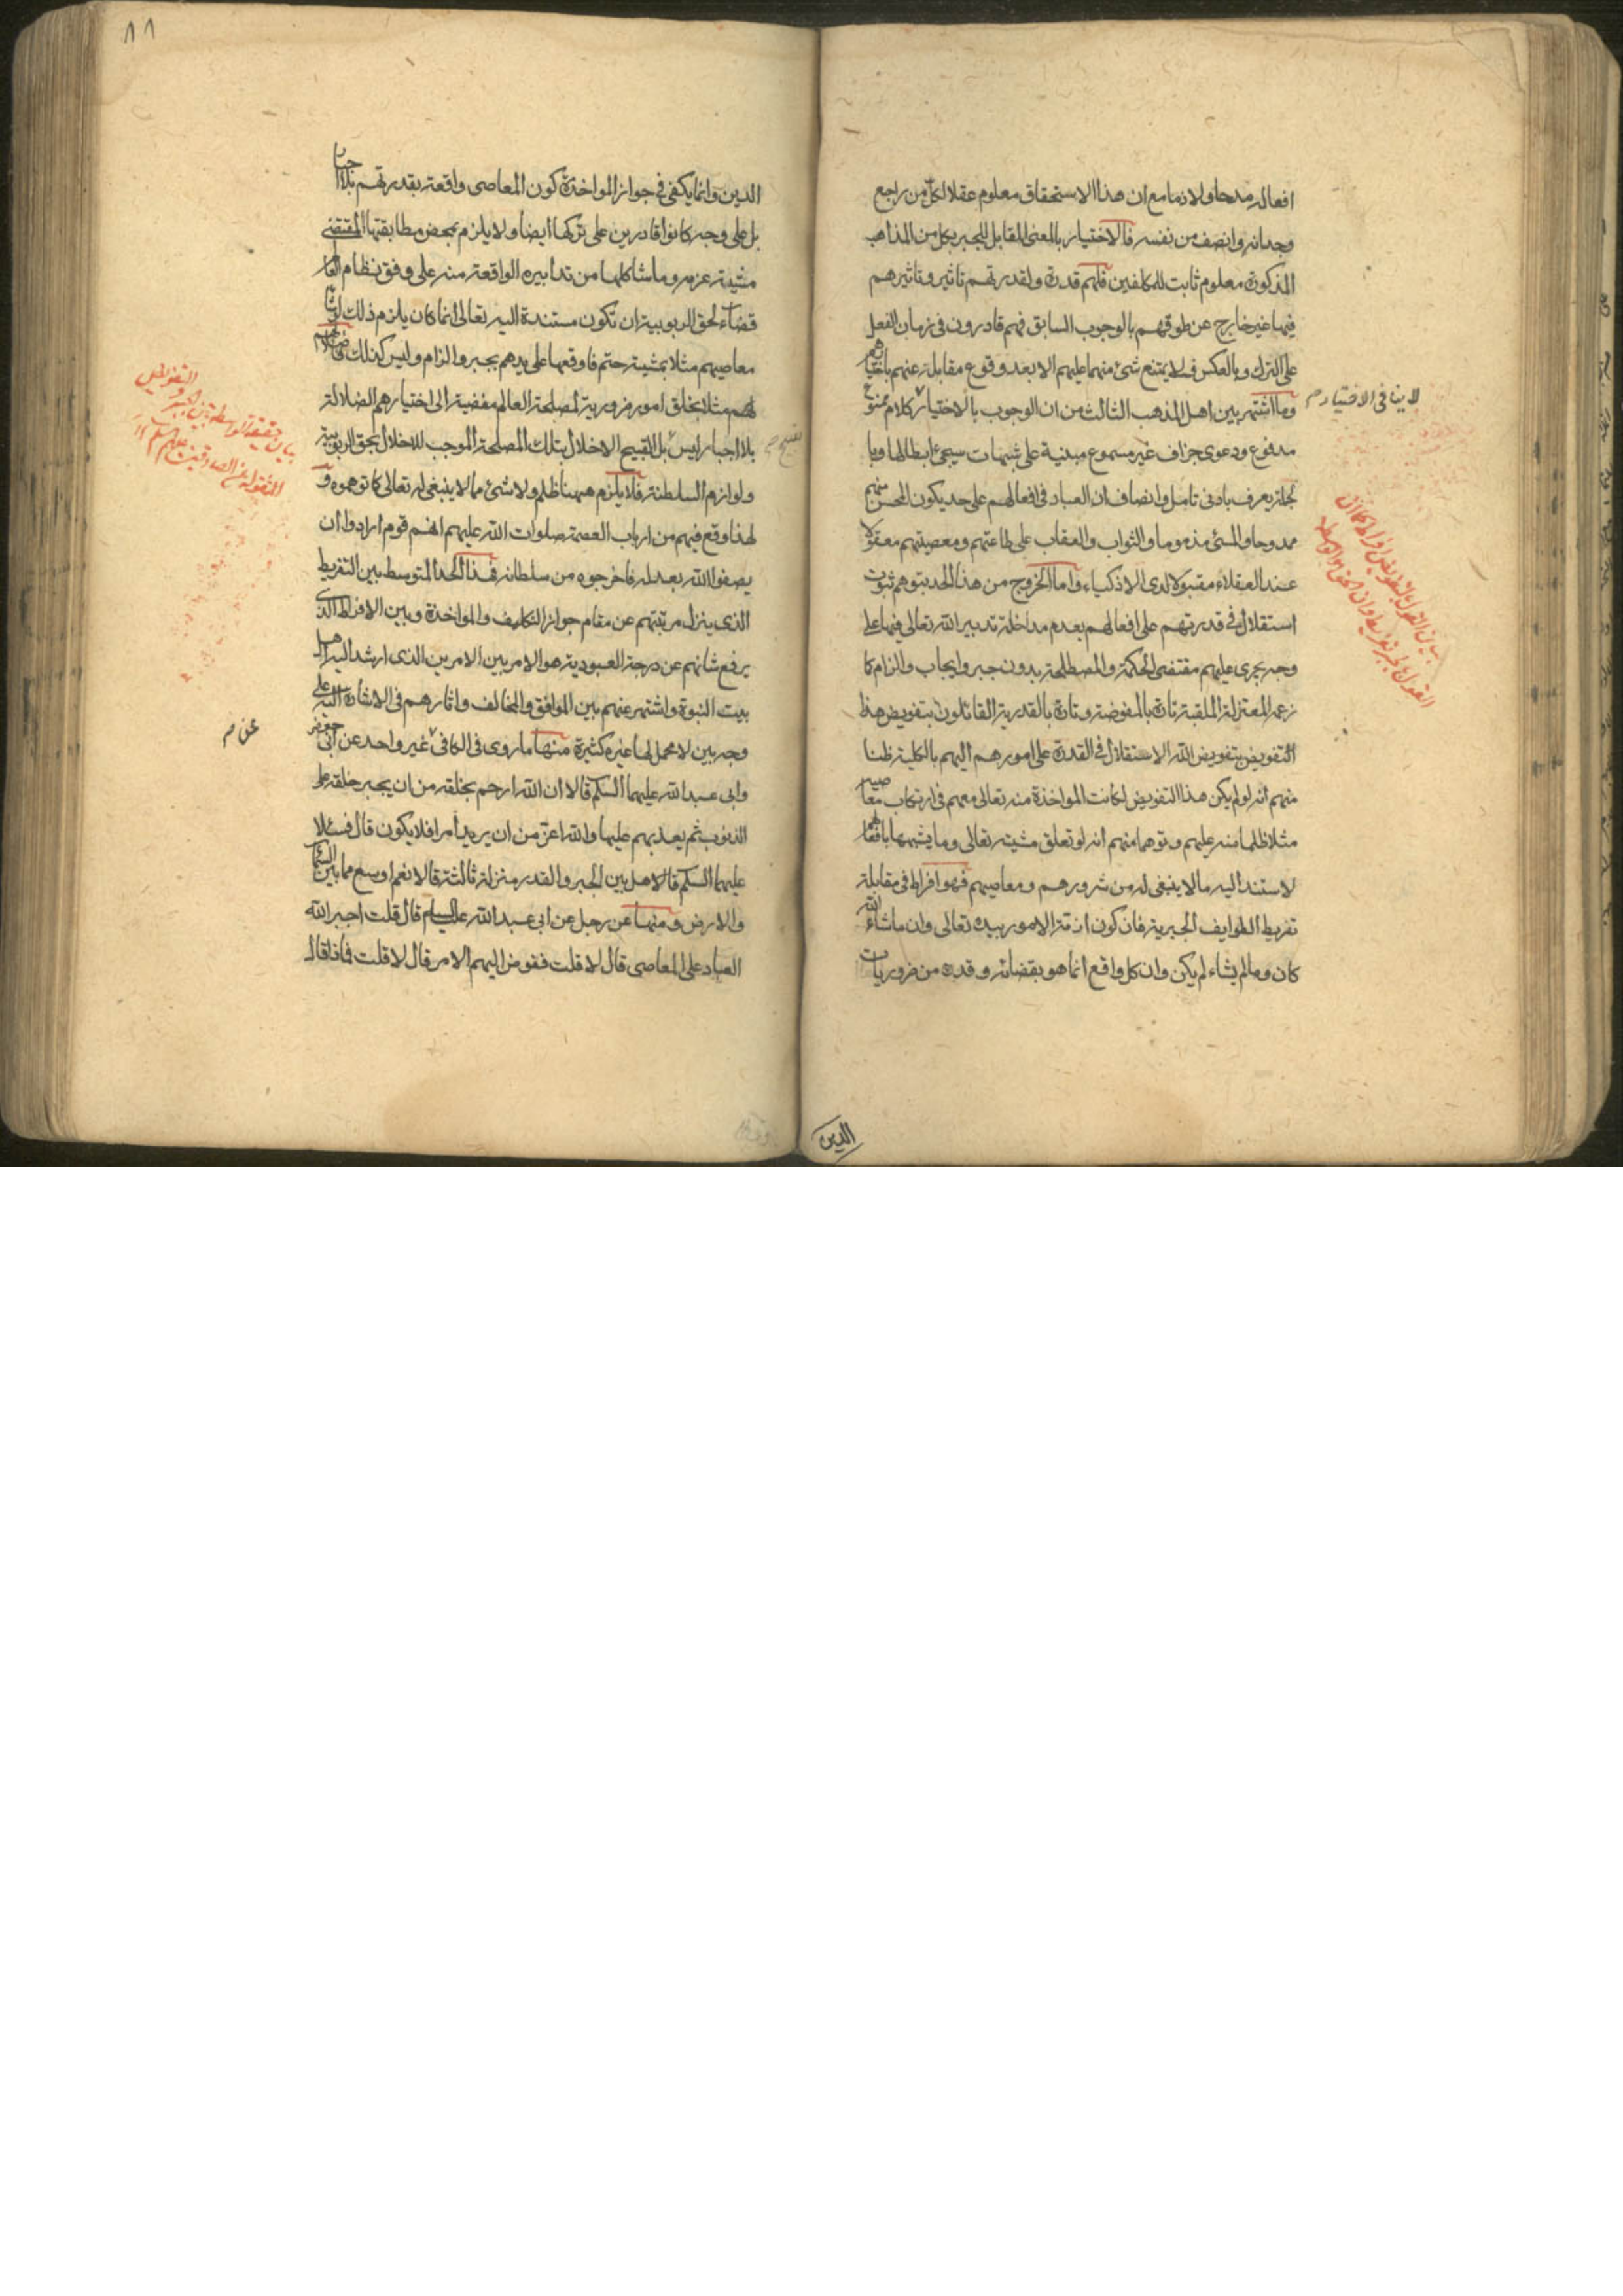 افعاله مدحا ولا ذما مع ان هذا الاستحقاق معلوم عقلا لكل من راجع
وجدانه وانصف من نفسه فالاختيار بالمعنى المقابل للجبر بكل من المذاهب
المذكورة معلوم ثابت للمكلفين فلهم قدرة ولقدرتهم تاثير وتاثيرهم
فيها غير خارج عن طوقهم بالوجوب السابق فهم قادرون في زمان الفعل
على الترك وبالعكس فلا يمتنع شئ منهما عليهم الا بعد وقوع مقابله عنهم باختيارهم
وما اشتهر بين اهل المذهب الثالث من ان الوجوب بالاختيار كلام ممنوع
لا ينافى الاختيار م
مدفوع ودعوى جزاف غير مسموع مبنية على شبهات سيجئ ابطالها وبا
لجملة يعرف بادنى تامل وانصاف ان العباد في افعالهم على حد يكون المحسن منهم
ممدوحا والمسئ مذموما والثواب والعقاب على طاعتهم ومعصيتهم معقولا
عند العقلاء مقبولا لدى الاذكياء واما الخروج من هذا الحد بتوهم ثبوت
استقلال في قدرتهم على افعالهم بعدم مداخلة تدبير الله تعالى فيها على
وجه يجرى عليهم مقتضى الحكمة والمصلحة بدون جبر وايجاب والزام كما
زعمه المعتزلة الملقبة تارة بالمفوضة وتارة بالقدرية القائلون بتفويض هذا
التفويض بتفويض الله الاستقلال في القدرة على امورهم اليهم بالكلية ظنا
منهم انه لو لم يكن هذا التفويض لكانت المواخذة منه تعالى معهم في ارتكاب معاصيهم
مثلا ظلما منه عليهم وتوهما منهم انه لو تعلق مشيته تعالى وما يشبهها بافعالهم
لاستند اليه ما لا ينبغى له من شرورهم ومعاصيهم فهو افراط في مقابلة
تفريط الطوايف الجبرية فان كون ازمة الامور بيده تعالى وان ما شاء الله
كان وما لم يشاء لم يكن وان كل واقع انما هو بقضائه وقدره من ضروريات
الدين
٨٨
الدين وانما يكفى في جواز المواخذة كون المعاصى واقعة بقدرتهم بلا اجبار
بل على وجه كانوا قادرين على تركها ايضا ولا يلزم بمحض مطابقتها المقتضى
مشيته عزمه وما شاكلها من تدابيره الواقعة منه على وفق نظام العالم
قضاء لحق الربوبية ان تكون مستندة اليه تعالى انما كان يلزم ذلك لو شاء
معاصيهم مثلا بمشية حتم فاوقعها على يدهم بجبر والزام وليس كذلك
لهم مثلا بخلق امور ضرورية لمصلحة العالم مفضية الى اختيارهم الضلالة
بلا اجبار ليس بل القبيح الاخلال بتلك المصلحة الموجب للاخلال بحق الربوبية
بقبيح م
ولوازم السلطنة فلا يلزم ههنا ظلم ولا شئ مما لا ينبغى له تعالى كما توهموه و
لهذا وقع فيهم من ارباب العصمة صلوات الله عليهم انهم قوم ارادوا ان
يصفوا الله بعدله فاخرجوه من سلطانه فهذا الحد المتوسط بين التفريط
الذى ينزل مرتبتهم عن مقام جواز التكليف والمواخذة وبين الافراط الذى
يرفع شانهم عن درجة العبودية هو الامر بين الامرين الذى ارشد اليه اهل
بيت النبوة واشتهر عنهم بين الموافق والمخالف واثارهم في الاشارة اليه على
وجه بين لا محمل لها غيره كثيرة منها ما روى في الكافى غير واحد عن ابى جعفر
عن م
وابى عبد الله عليهما السلم قالا ان الله ارحم بخلقه من ان يجبر خلقه على
الذنوب ثم يعذبهم عليها والله اعز من ان يريد امرا فلا يكون قال فسئلا
عليهما السلم هل بين الجبر والقدر منزلة ثالثة قالا نعم اوسع مما بين السماء
والارض ومنها عن رجل عن ابى عبد الله عليه السلام قال قلت اجبر الله
العباد على المعاصى قال لا قلت ففوض اليهم الامر قال لا قلت فماذا قال
بيان حقيقة الواسطة بين الجبر و
التفويض
المنقولة عن الصادقين عليهم السلم